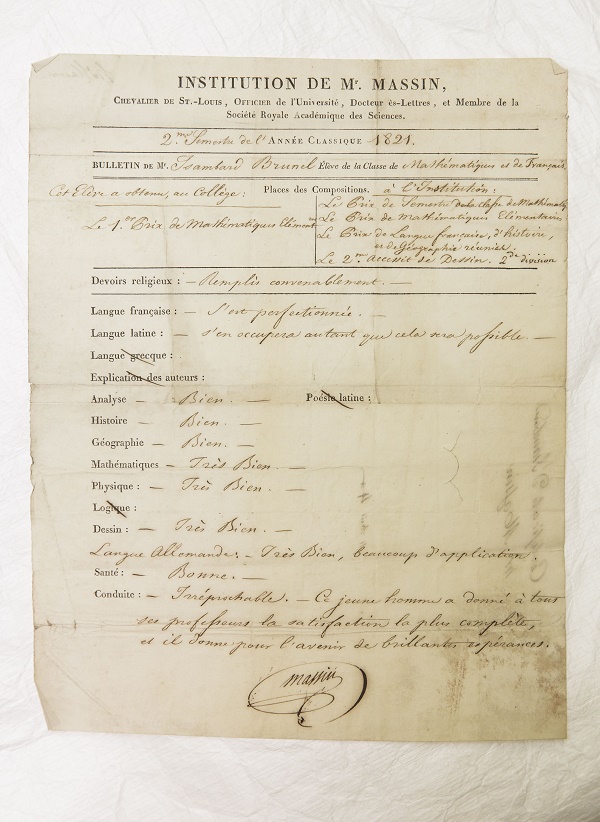 INSTITUTION DE Mr. MASSIN,
Chevalier de St.-Louis, Officier de l'Université, Docteur ès-Lettres, et Membre de la
Société Royale Académique des Sciences.
2.me Semestre de l'Année Classique 1821.
BULLETIN DE Mr. Isambard Brunel Élève de la Classe de Mathématiques et de Français
Cet Elève a obtenu, au Collège: Places des Compositions. à l'Institution:
Le Prix de Semestre de la Classe de Mathématiq
Le 1.er Prix de Mathématiques Elément Le Prix de Mathématiques Elémentaires
Le Prix de Langue française, d'histoire,
et de Géographie réunies.
Le 2.me Accessit de Dessin. 2de division
Devoirs religieux : — Remplis convenablement. —
Langue française : — S'est perfectionnée. —
Langue latine : — s'en occupera autant que cela sera possible. —
Langue grecque :
Explication des auteurs :
Analyse — Bien. — Poésie latine :
Histoire — Bien. —
Géographie — Bien. —
Mathématiques — Très Bien. —
Physique : — Très Bien. —
Logique :
Dessin : — Très Bien. —
Langue Allemande : — Très Bien, beaucoup d'application.
Santé : — Bonne. —
Conduite : — Irréprochable. — Ce jeune homme a donné à tous
ses professeurs la satisfaction la plus complète,
et il donne pour l'avenir de brillantes espérances.
Massin